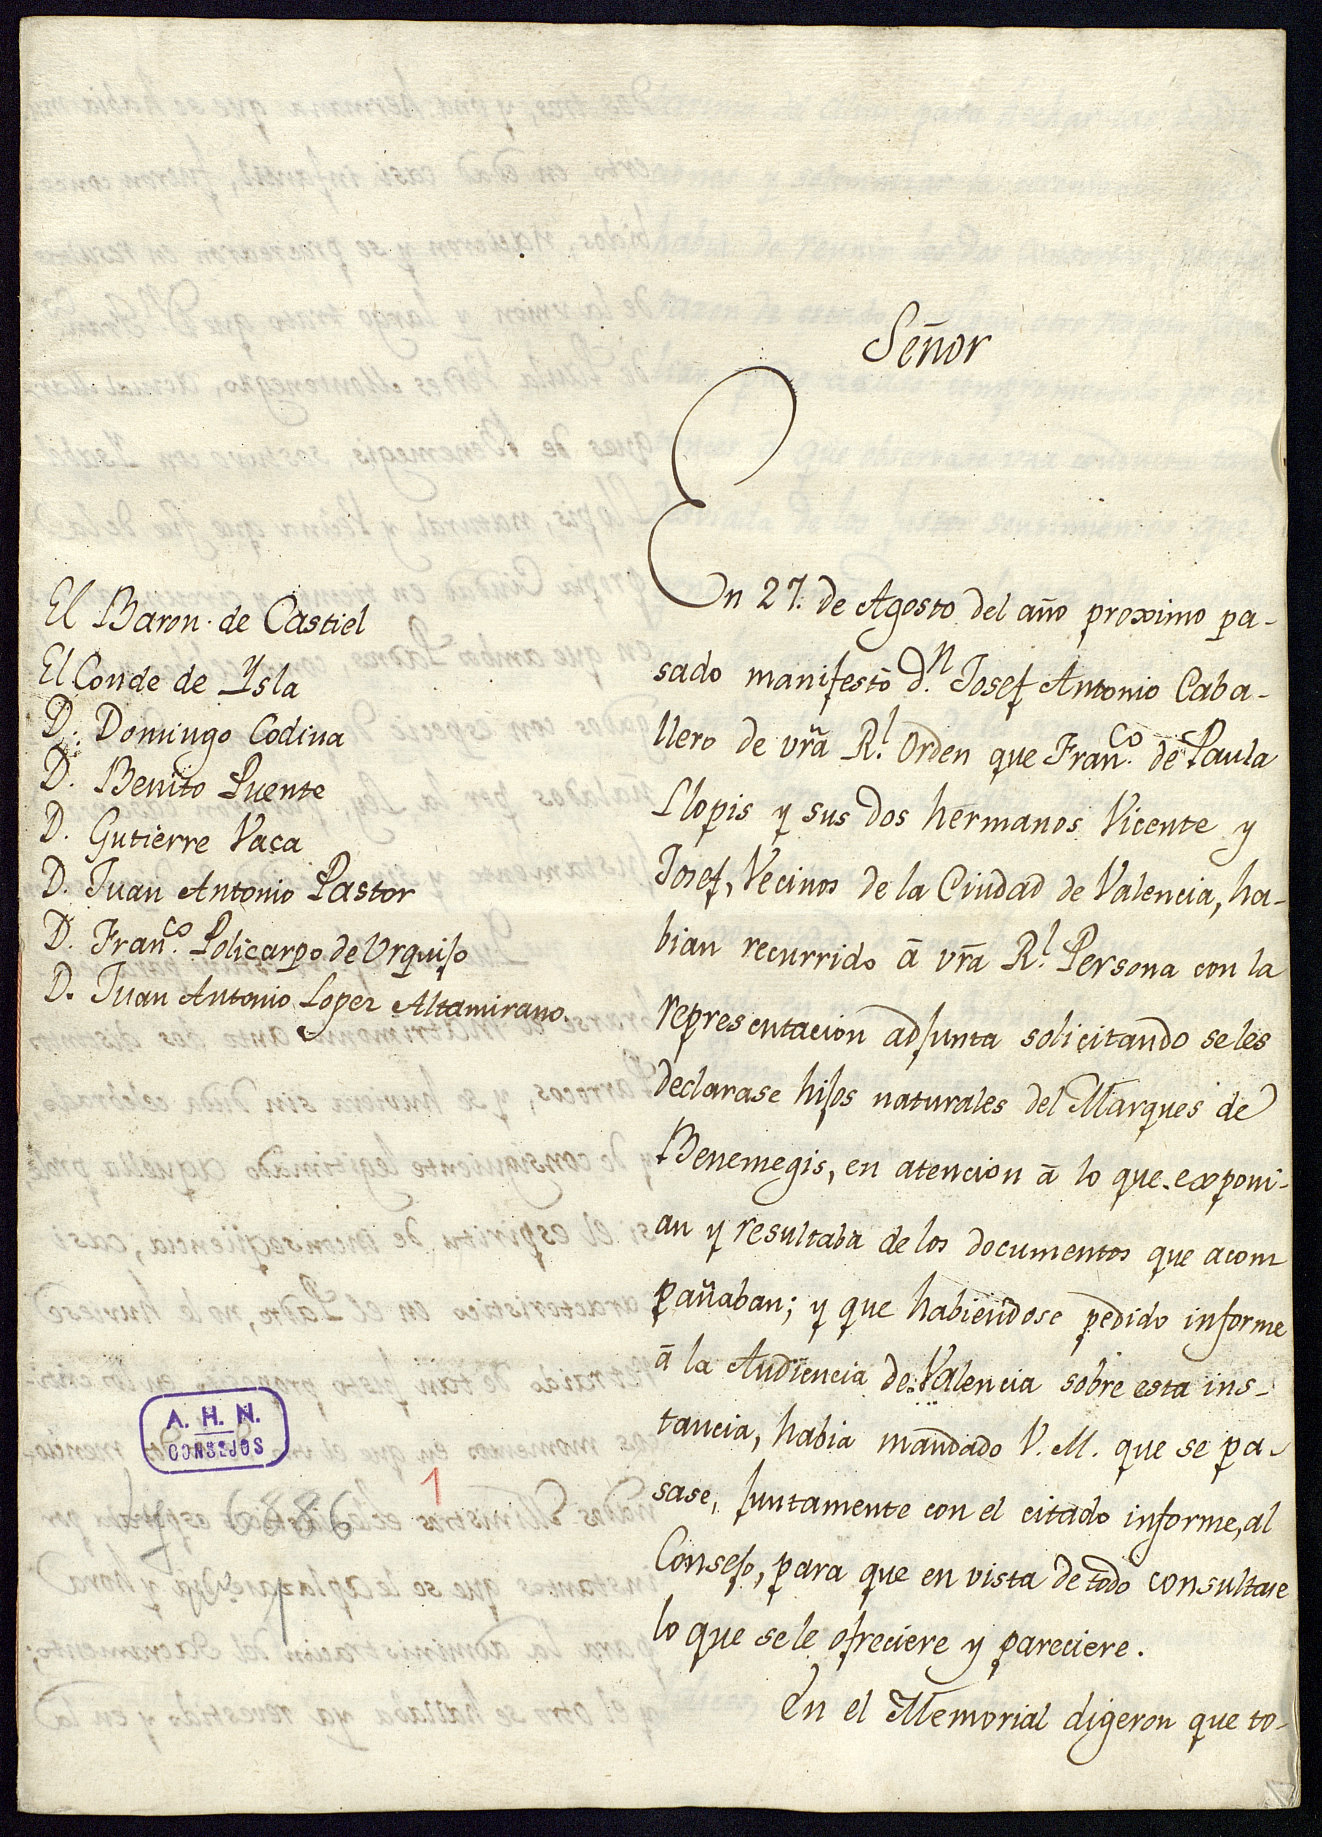 Señor
El Baron de Castiel
El Conde de Ysla
D. Domingo Codina
D. Benito Puente
D. Gutierre Vaca
D. Juan Antonio Pastor
D. Franco. Policarpo de Urquijo
D. Juan Antonio Lopez Altamirano.
En 27. de Agosto del año proximo pa-
sado manifestó Dn. Josef Antonio Caba-
llero de vrã Rl. Orden que Franco. de Paula
Llopis y sus dos hermanos Vicente y
Josef, Vecinos de la Ciudad de Valencia, ha-
bian recurrido á vrã Rl. Persona con la
representacion adjunta solicitando se les
declarase hijos naturales del Marques de
Benemegis, en atencion á lo que exponi-
an y resultaba de los documentos que acom
pañaban; y que habiendose pedido informe
á la Audiencia de Valencia sobre esta ins-
tancia, habia mandado V. M. que se pa-
sase, juntamente con el citado informe, al
Consejo, para que en vista de todo consultase
lo que se le ofreciere y pareciere.
En el Memorial digeron que to-
A. H. N.
CONSEJOS
1